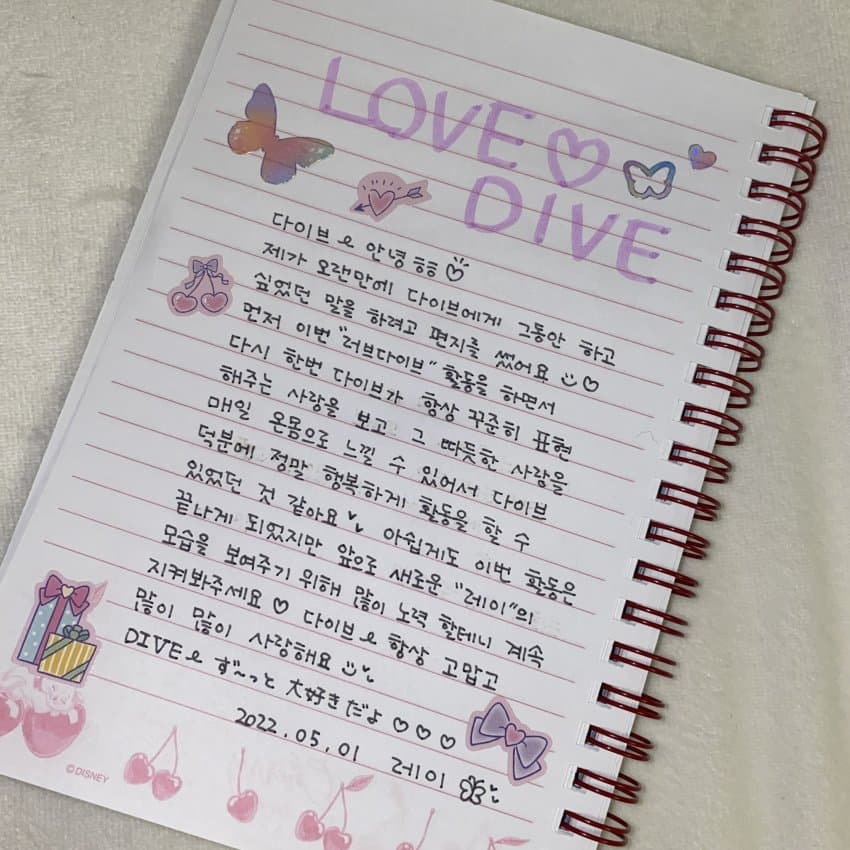 LOVE♡
DIVE
다이브 안녕ㅎㅎ♡
제가 오랜만에 다이브에게 그동안 하고
싶었던 말을 하려고 편지를 썼어요 ♡
먼저 이번 "러브다이브" 활동을 하면서
다시 한번 다이브가 항상 꾸준히 표현
해주는 사랑을 보고 그 따듯한 사랑을
매일 온몸으로 느낄 수 있어서 다이브
덕분에 정말 행복하게 활동을 할 수
있었던 것 같아요 아쉽게도 이번 활동은
끝나게 되었지만 앞으로 새로운 "레이"의
모습을 보여주기 위해 많이 노력 할테니 계속
지켜봐주세요 ♡ 다이브 항상 고맙고
많이 많이 사랑해요
DIVE ず〜っと 大好きだよ ♡♡♡
2022.05.01 레이
©DISNEY